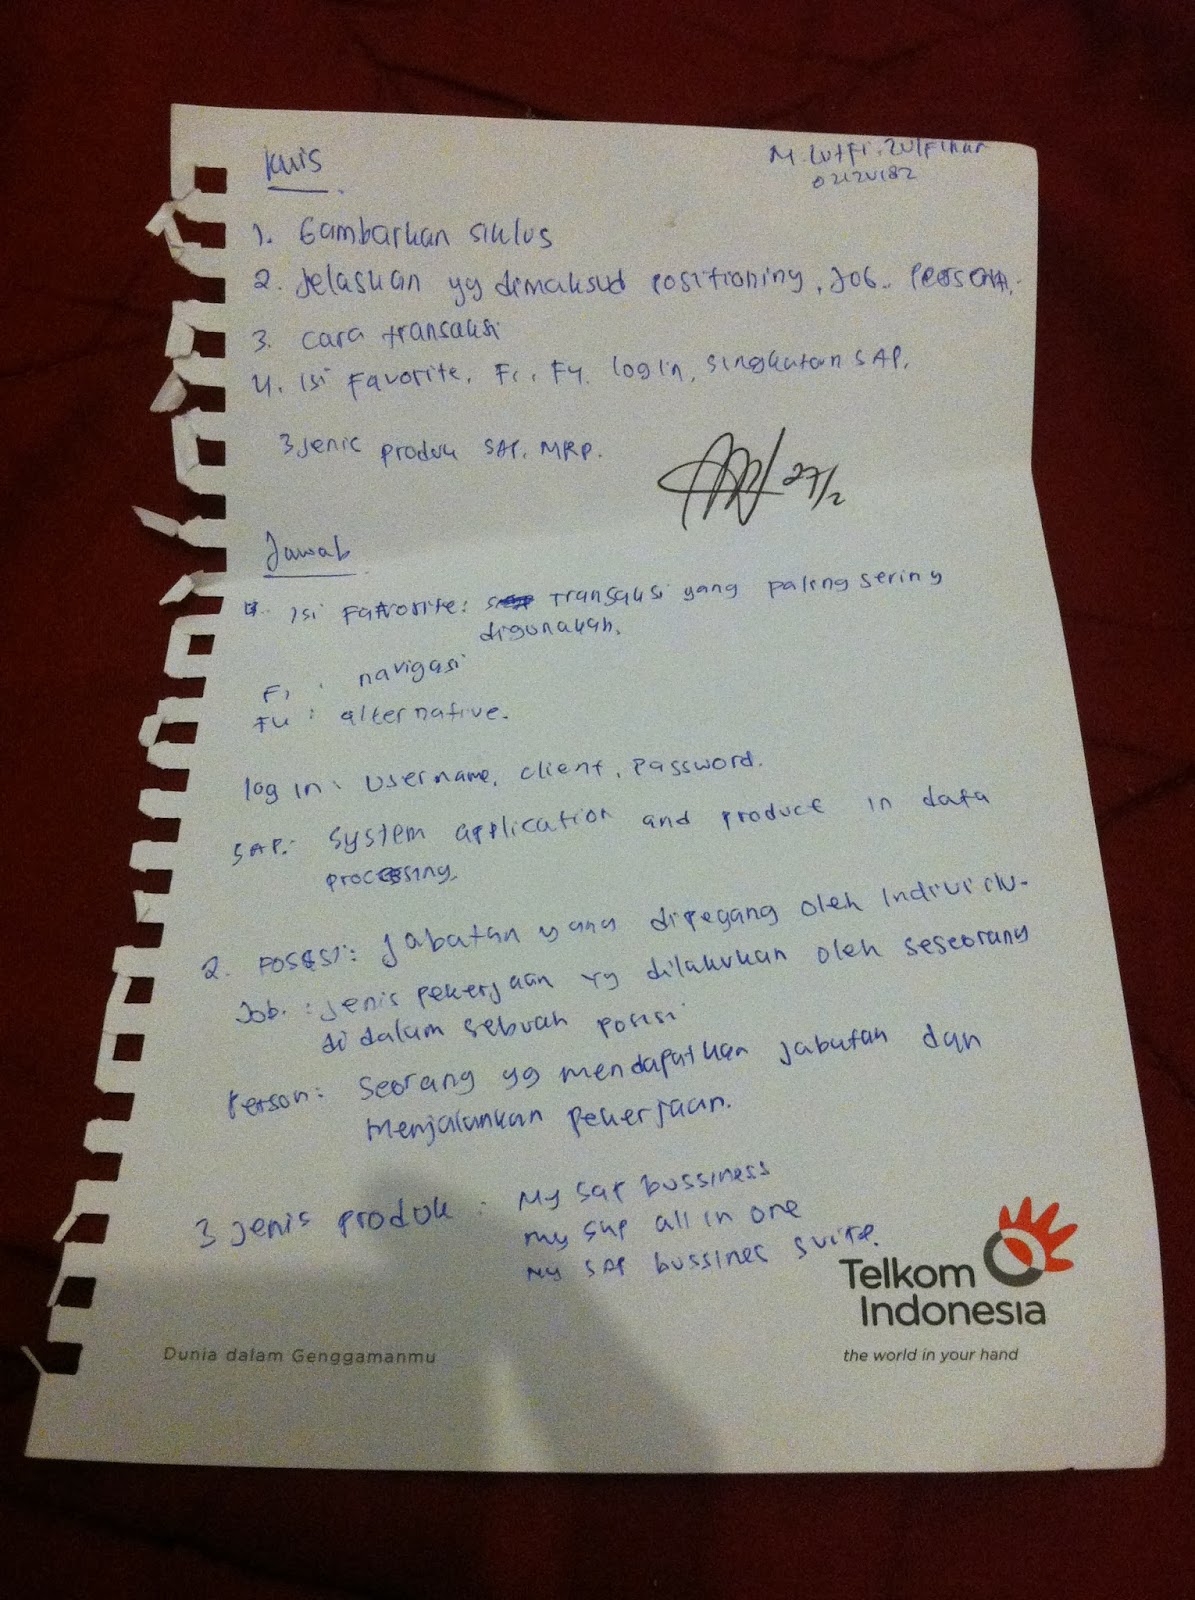 Kuis
M. Lutfi. Zulfikar
1. Gambarkan siklus
2. Jelaskan yg dimaksud positioning, Job.
3. cara transaksi
4. isi Favorite, F1, F4. login, singkatan SAP.
3 jenis produk SAP, MRP.
27/2
Jawab
4. Isi Favorite: transaksi yang paling sering
digunakan.
F1 : navigasi
F4 : alternative.
log in : Username, client, Password.
SAP: System application and product in data
processing.
2. Posisi: Jabatan yang dipegang oleh individu.
Job. : jenis pekerjaan yg dilakukan oleh seseorang
di dalam sebuah posisi
Person: Seorang yg mendapatkan jabatan dan
menjalankan pekerjaan.
3 jenis produk : My sap bussiness
my sap all in one
My SAP bussines suite.
Telkom
Indonesia
Dunia dalam Genggamanmu
the world in your hand